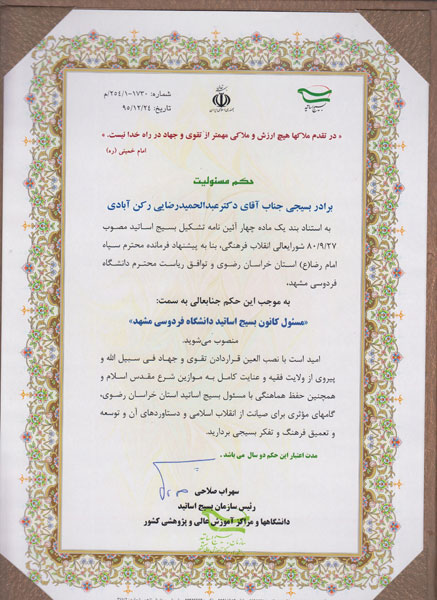 شماره: ۲۵۴/۱-۱۷۳۰/م
تاریخ: ۹۵/۱۲/۲۴
« در تقدم ملاکها هیچ ارزش و ملاکی مهمتر از تقوی و جهاد در راه خدا نیست. »
امام خمینی (ره)
حکم مسئولیت
برادر بسیجی جناب آقای دکترعبدالحمیدرضایی رکن آبادی
به استناد بند یک ماده چهار آئین نامه تشکیل بسیج اساتید مصوب
۸۰/۹/۲۷ شورایعالی انقلاب فرهنگی، بنا به پیشنهاد فرمانده محترم سپاه
امام رضا(ع) استان خراسان رضوی و توافق ریاست محترم دانشگاه
فردوسی مشهد،
به موجب این حکم جنابعالی به سمت:
«مسئول کانون بسیج اساتید دانشگاه فردوسی مشهد»
منصوب می‌شوید.
امید است با نصب العین قراردادن تقوی و جهاد فی سبیل الله و
پیروی از ولایت فقیه و عنایت کامل به موازین شرع مقدس اسلام و
همچنین حفظ هماهنگی با مسئول بسیج اساتید استان خراسان رضوی،
گامهای مؤثری برای صیانت از انقلاب اسلامی و دستاوردهای آن و توسعه و
تعمیق فرهنگ و تفکر بسیجی بردارید.
مدت اعتبار این حکم دو سال می باشد .
سهراب صلاحی
رئیس سازمان بسیج اساتید
دانشگاهها و مراکز آموزش عالی و پژوهشی کشور